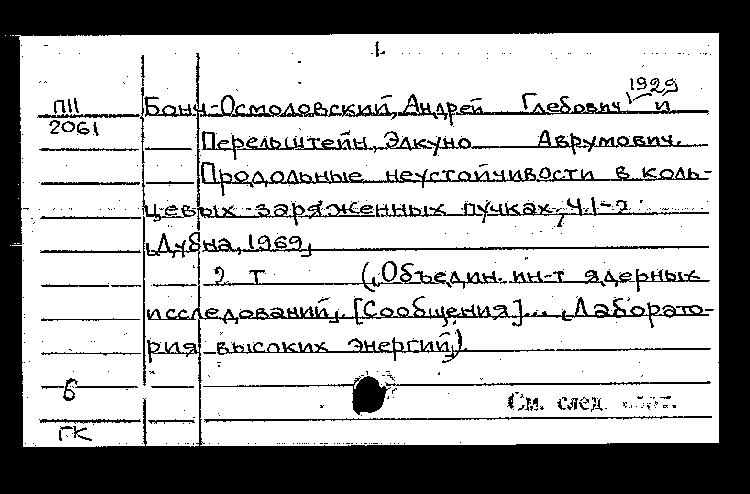 1.
1929
П11 Бонч-Осмоловский, Андрей Глебович и
2061
Перельштейн, Элкуно Аврумович.
Продольные неустойчивости в коль-
цевых заряженных пучках, Ч.1-2
Дубна, 1969,
2 т (Объедин. ин-т ядерных
исследований. [Сообщения]... Лаборато-
рия высоких энергий)
б
См. след.
ГК